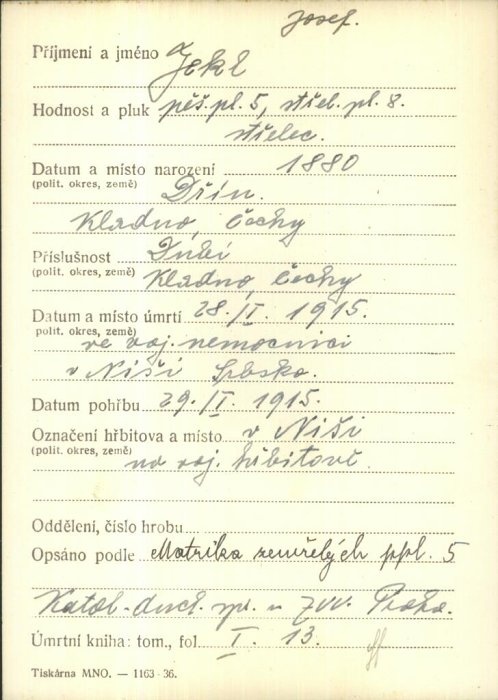 Josef.
Příjmení a jméno Jekl
Hodnost a pluk pěš. pl. 5, střel. pl. 8.
střelec.
Datum a místo narození 1880
(polit. okres, země) Dřín.
Kladno, Čechy
Příslušnost Dubí
(polit. okres, země) Kladno, Čechy
Datum a místo úmrtí 28./II. 1915.
polit. okres, země)
ve voj. nemocnici
v Niši Srbsko.
Datum pohřbu 29./II. 1915.
Označení hřbitova a místo v Niši
(polit. okres, země) na voj. hřbitově.
Oddělení, číslo hrobu
Opsáno podle Matrika zemřelých ppl. 5
Katol. duch. spr. u ZVV. Praha.
Úmrtní kniha: tom., fol. I. 13.
Tiskárna MNO. — 1163-36.